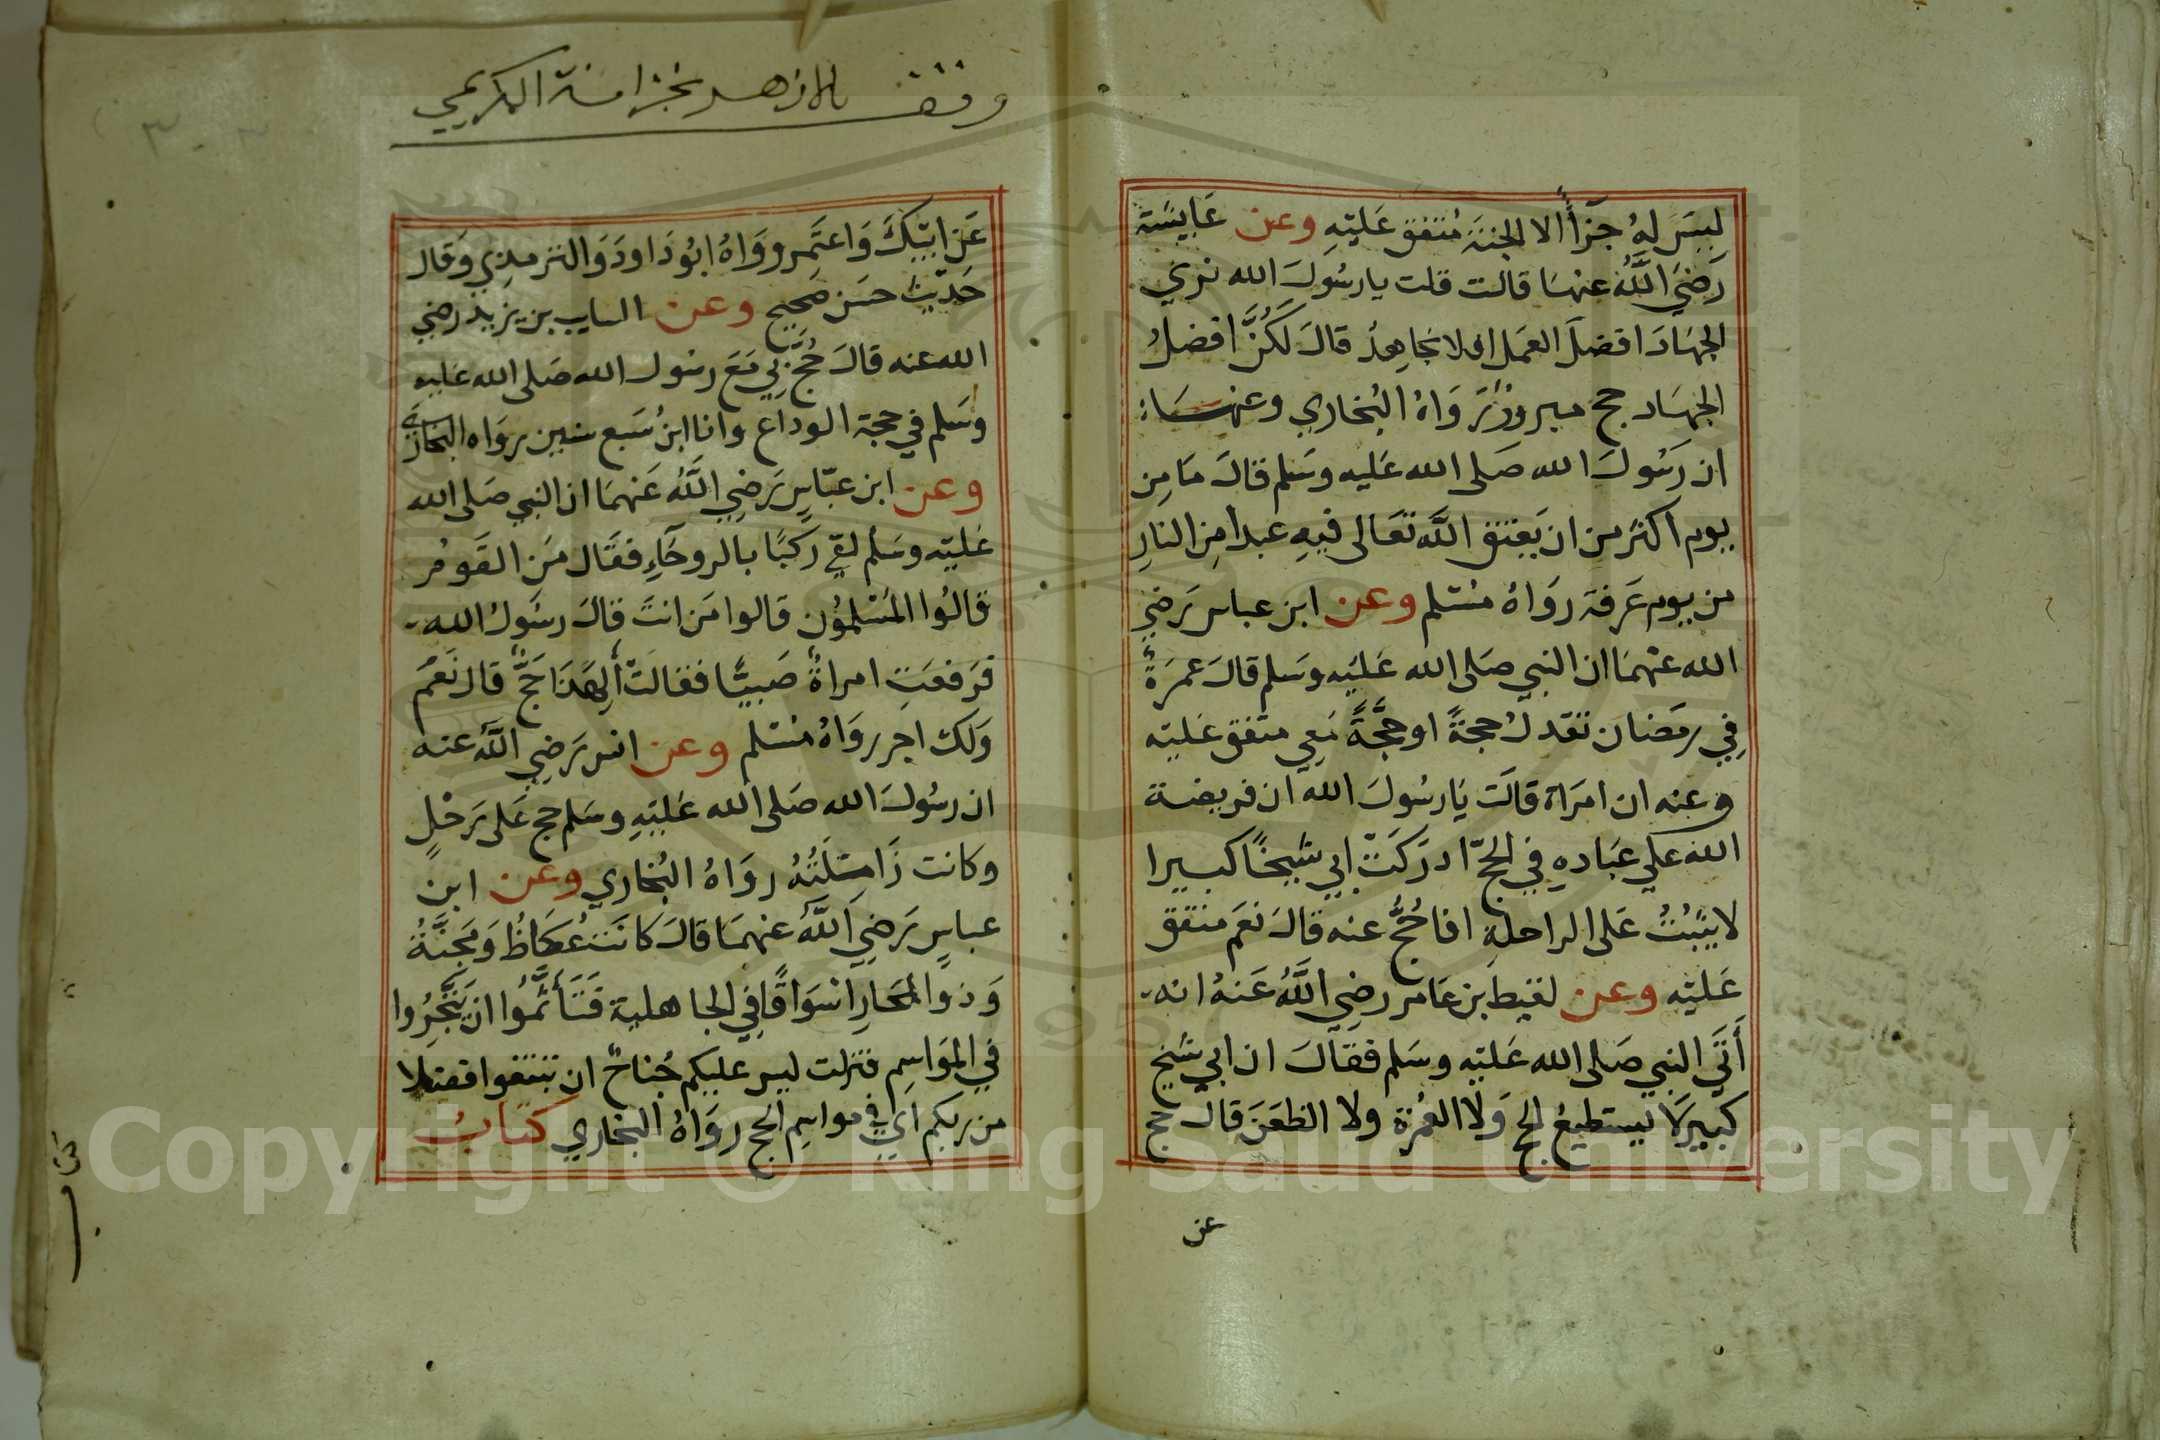 ليسَ لهُ جزآءٌ الا الجنةَ مُتفق عَليْهِ وعن عَايشَة
رَضيَ اللَّهُ عنهَا قالت قلت يارسُولَ الله نري
الجهَادَ افضلَ العمَل افلا نجاهِدُ قالَ لَكُنَّ افضلُ
الجهَاد حج مبرورٌ رَوَاهُ البُخاري وعنهَا:
ان رَسُولَ الله صَلى الله عَليه وسَلم قالَ مَا مِن
يوم اكثرَ من ان يَعتق اللَّه تعَالى فيهِ عبدا مِن النارِ
من يوم عَرفة رَوَاهُ مسْلم وعن ابن عباس رَضي
الله عنهمَا ان النبي صَلى الله عَليْه وسَلم قالَ عمرَةٌ
فِي رمَضان تعْدلُ حجةً او حجَّةً مَعِي متفق عَليْه
وعنه ان امرَاة قالَت يَارسُولَ الله ان فريضة
الله علي عبَادهِ في الحجّ ادرَكَتْ ابي شيخًا كبيرا
لا يثبُتُ عَلى الراحلةِ افاحُجُّ عنه قالَ نعَم متفق
عَليْه وعن لقيط بن عَامر رضِي اللَّهُ عَنهُ انه
أَتَي النبي صَلى الله عَليْه وسَلم فقالَ ان ابي شيخ
كبير لَا يستطيعُ الحج وَلَا العُمرَة ولا الظعَنَ قالَ حج
عن
وقف للازهر بخزانة الكريمي
عَن ابيْكَ وَاعتَمِر رَوَاهُ ابُو دَاودَ وَالترمذِي وَقال
حَديْث حسَن صَحيح وعن السايب بن يزيد رضي
الله عنه قالَ حُجَّ بِي مَعَ رسُول الله صَلى الله عَليه
وسَلم في حجة الوداع وانا ابنُ سَبع سنين روَاه البخارَي
وعن ابن عبّاسٍ رَضِي اللَّهُ عَنهمَا ان النبي صَلى الله
عَليْه وسَلم لقي رَكبًا بالروحَآءِ فقال مَن القَومُ
قالُوا المُسْلمُون قالوا مَن انتَ قالَ رسُولُ الله
فرَفعَتِ امراةٌ صَبيًّا فقالتْ ألِهَذا حَجٌّ قال نَعَمْ
وَلك اجر روَاهُ مسْلم وعن انس رَضِي اللَّهُ عنه
ان رسُولَ الله صَلى الله عَليْهِ وسَلم حج عَلى رَحْلٍ
وكانت زَامِلتُهُ روَاهُ البُخاري وعن ابن
عباسٍ رَضِي اللَّهُ عنهمَا قالَ كانَتْ عُكَاظُ وَمَجِنَّةُ
وَذوا المَجَازِ اسْوَاقًا فِي الجاهلية فتَأَثَّمُوا ان يَتَّجِرُوا
في الموَاسِم فنزلت ليس عليكم جُناحٌ ان تبتغوا فضلا
من ربكم أي في مواسِم الحج روَاهُ البخاري كتابُ
Copyright © King Saud University